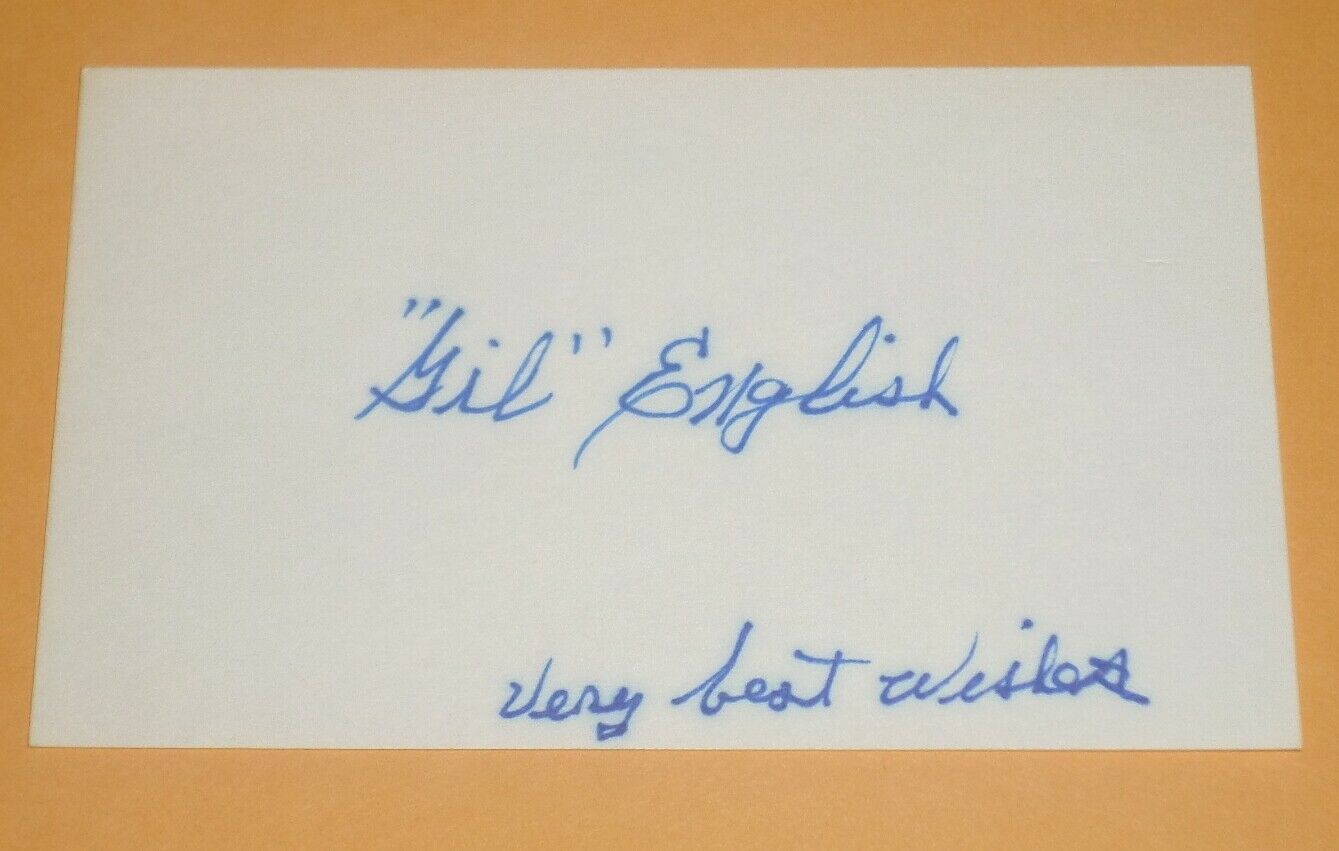 "Gil" English
Very best wishes